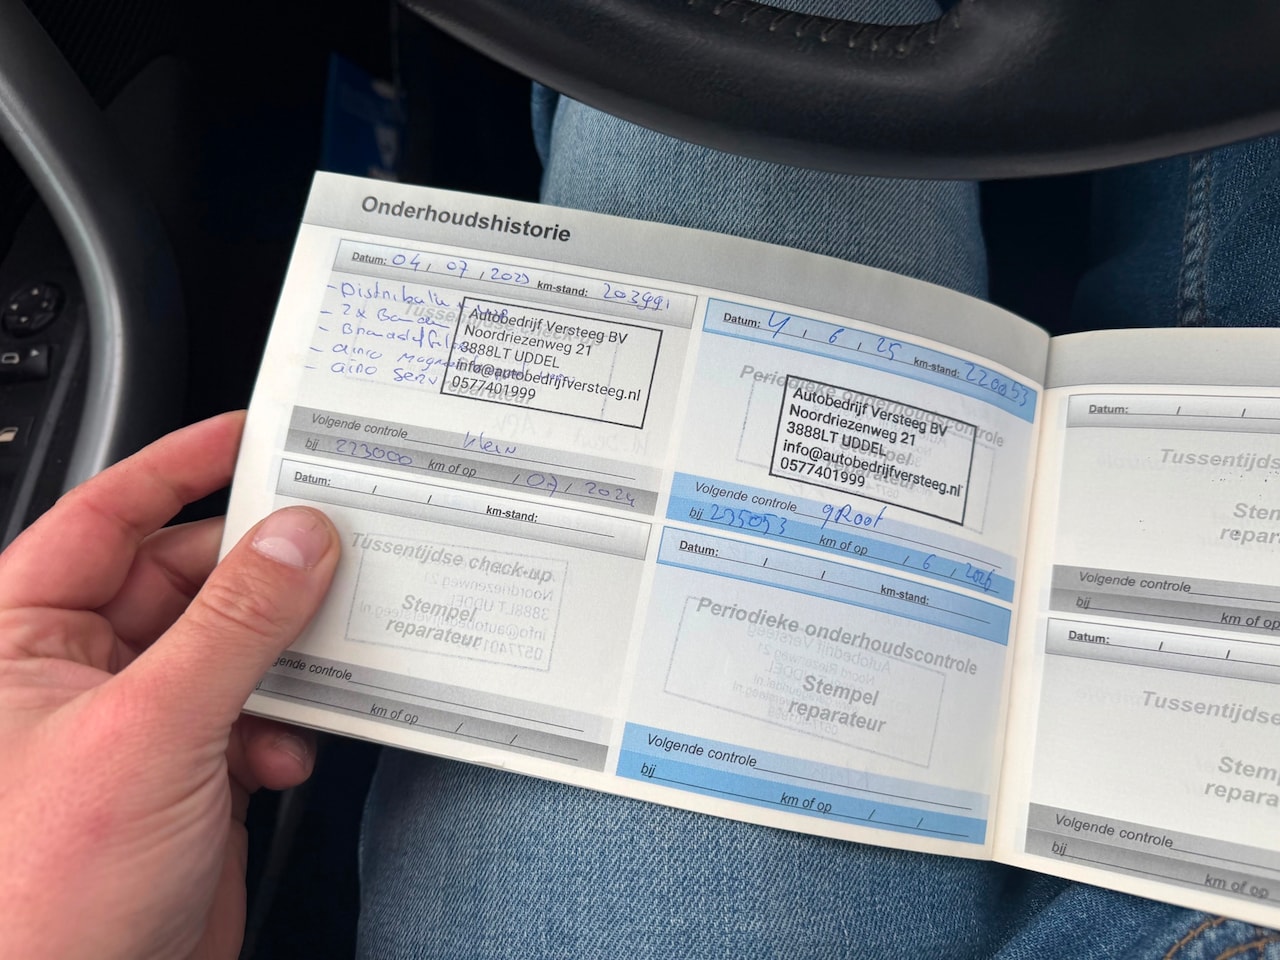 Onderhoudshistorie
Datum: 04, 07, 2023 km-stand: 203991
- Distributie
- 2x Banden
- Brandstoffilter
- airco
- airco serv
Tussentijdse check-up
reparateur
Autobedrijf Versteeg BV
Noordriezenweg 21
3888LT UDDEL
info@autobedrijfversteeg.nl
0577401999
Volgende controle klein
bij 223000 km of op / 07 / 2024
Datum: / / km-stand:
Tussentijdse check-up
Stempel
reparateur
Volgende controle
km of op / /
Datum: 4, 6, 25 km-stand: 220053
Periodieke onderhoudscontrole
Stempel
reparateur
Autobedrijf Versteeg BV
Noordriezenweg 21
3888LT UDDEL
info@autobedrijfversteeg.nl
0577401999
Volgende controle gRoot
bij 235053 km of op , 6, 2026
Datum: / / km-stand:
Periodieke onderhoudscontrole
Stempel
reparateur
Volgende controle
bij km of op / /
Datum: / /
Tussentijds
Stem
repara
Volgende controle
bij km of op
Datum: / /
Tussentijdse
Stem
repara
Volgende controle
bij km of op